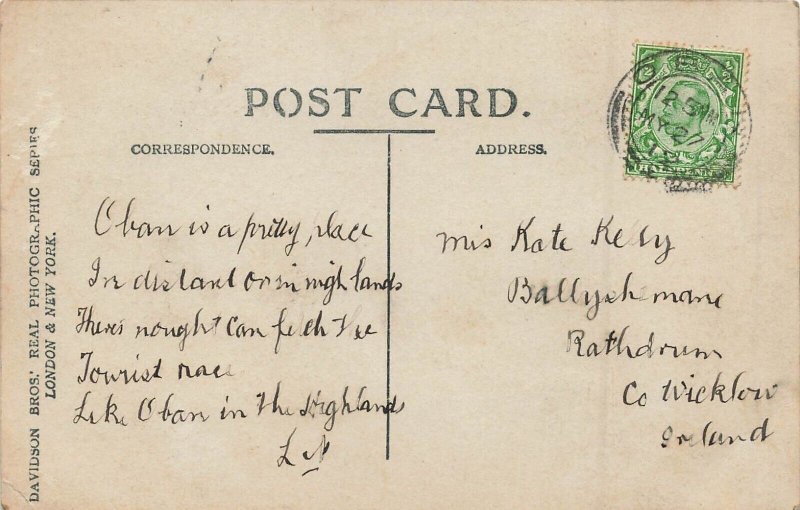 POST CARD.
CORRESPONDENCE.
ADDRESS.
DAVIDSON BROS.' REAL PHOTOGRAPHIC SERIES
LONDON & NEW YORK.
Oban is a pretty place
In distant or in nigh lands
Theres nought can fetch the
Tourist race
Like Oban in the Highlands
L N
Mis Kate Kelly
Ballyshemane
Rathdrum
Co Wicklow
Ireland
12.5 PM
MY 27
12